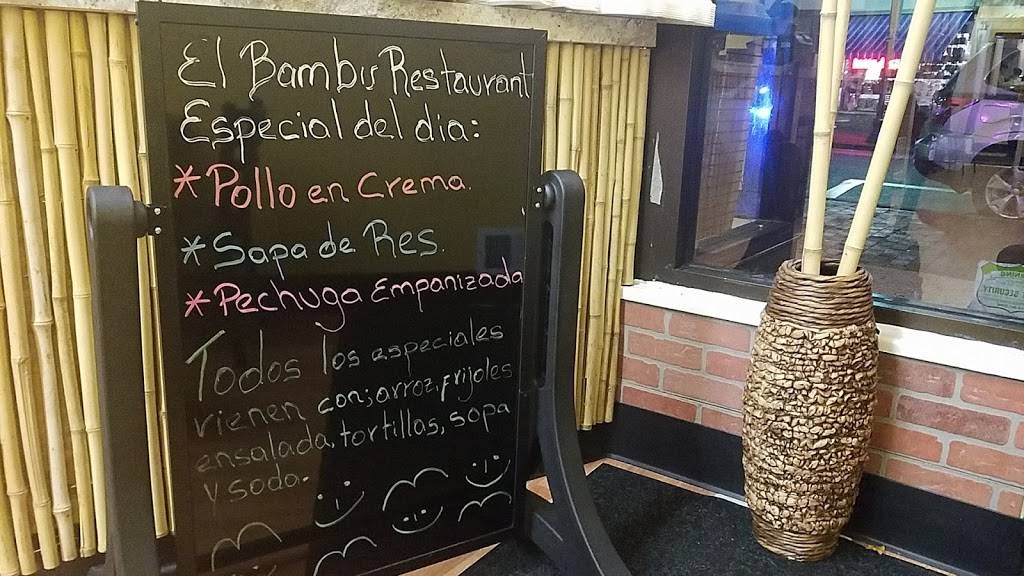 El Bambu Restaurant
Especial del dia:
*Pollo en Crema.
*Sopa de Res.
*Pechuga Empanizada
Todos los especiales
vienen con; arroz, frijoles
ensalada, tortillas, sopa
y soda.
WARNING
SECURITY